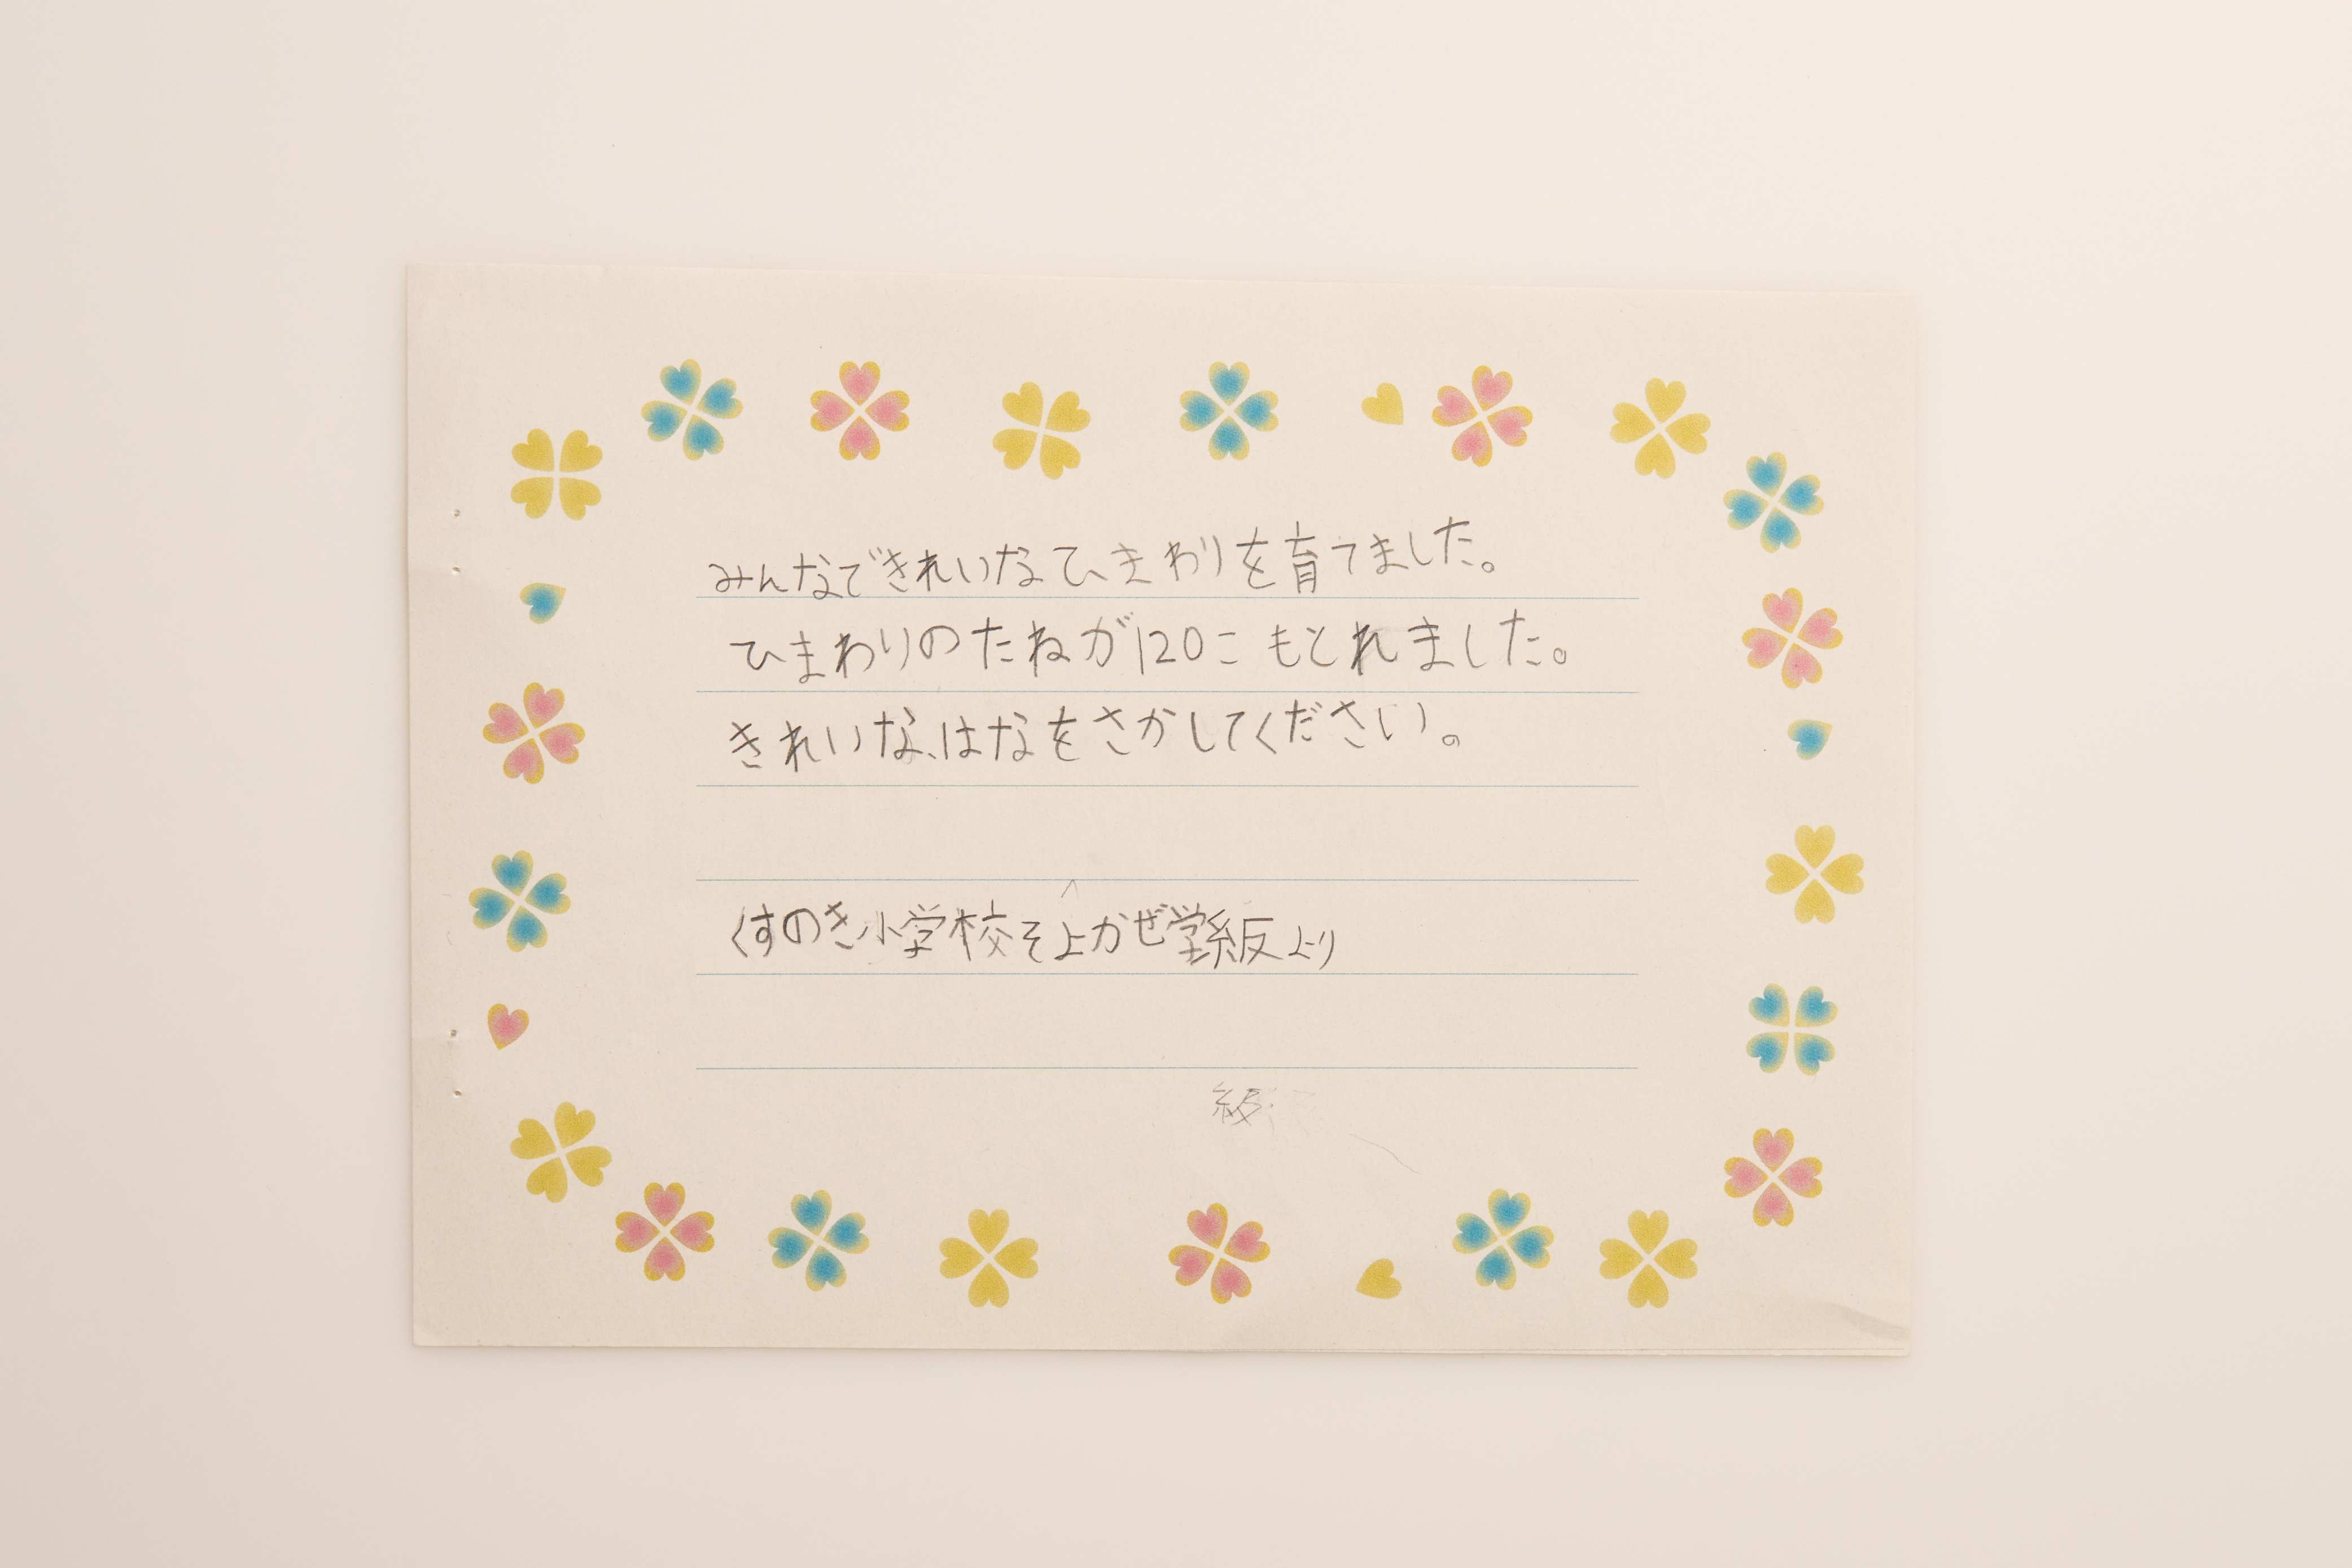 みんなできれいなひまわりを育てました。
ひまわりのたねが120こもとれました。
きれいな、はなをさかしてください。
くすのき小学校そよかぜ学級より
級